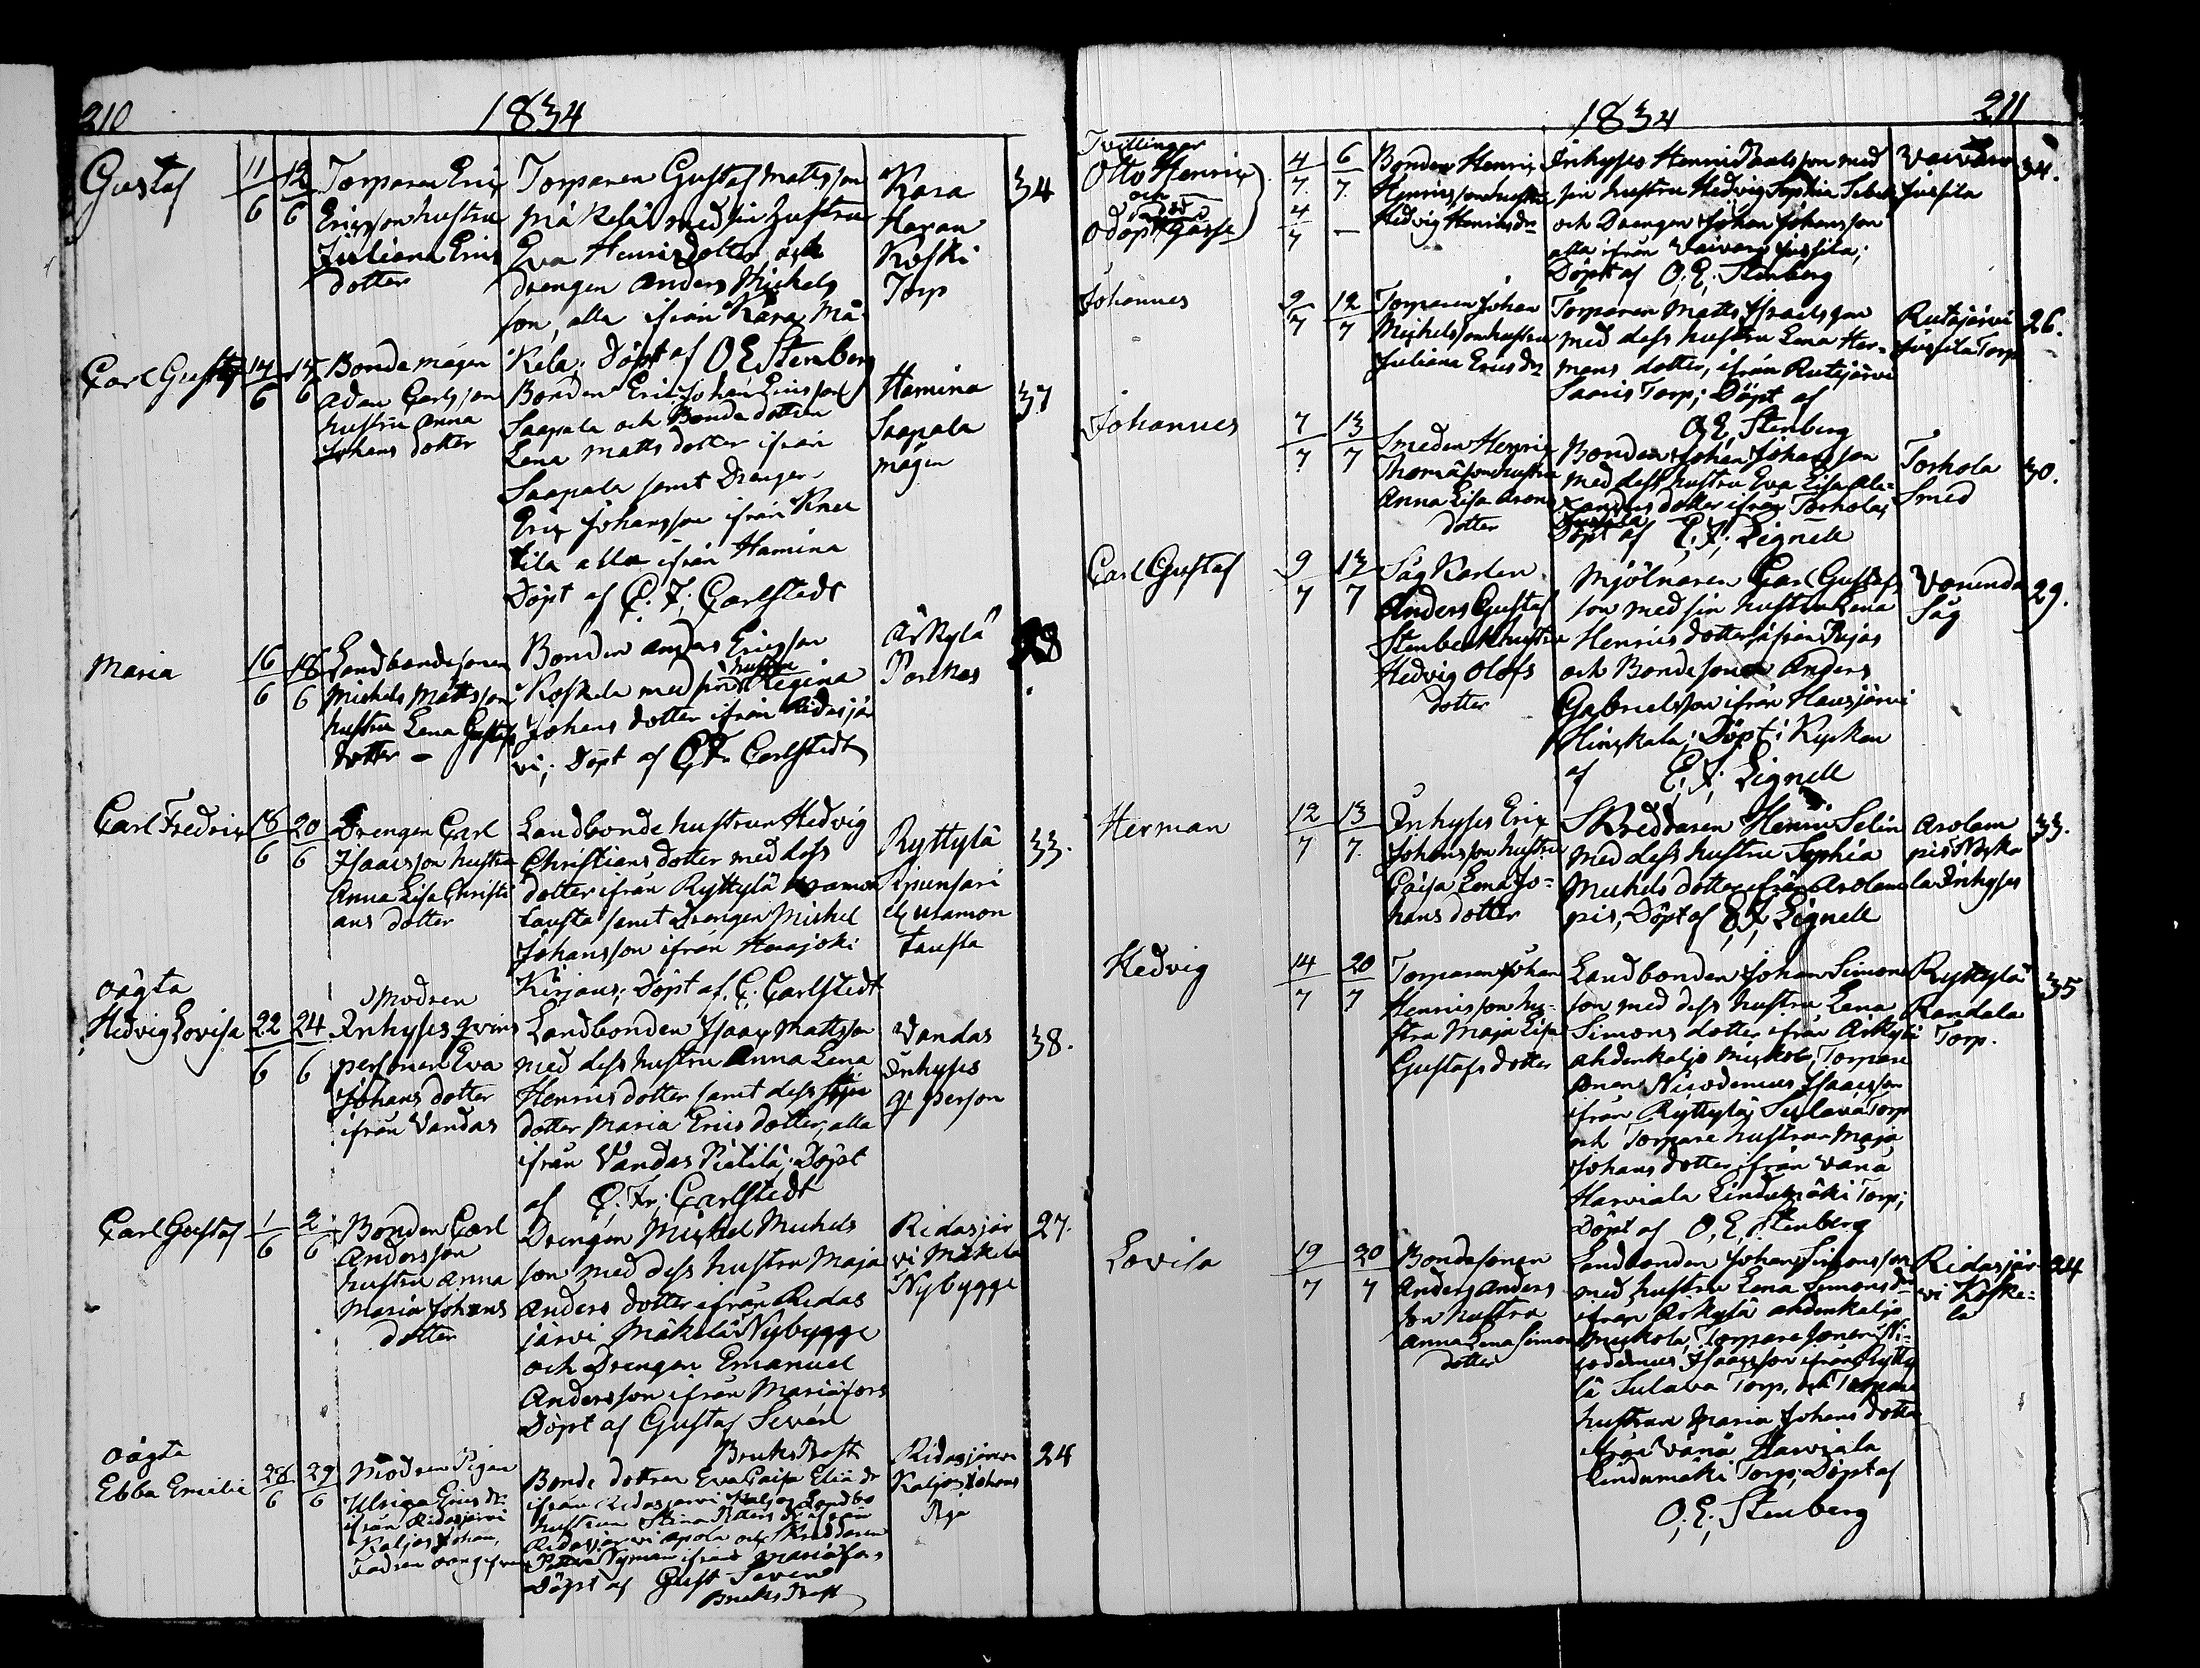 210
1834
Gustaf
11/6
12/6
Torparen Eric
Ericsson hustru
Juliana Erics
dotter
Torparen Gustaf Mattsson
Mäkelä med sin hustru
Eva Henricsdotter och
drengen Anders Michels
son, alla ifrån Kara Mä
kela; Döpt af O E Stenberg
Kara
Haran
Koski
Torp
34
Carl Gustaf
14/6
15/6
Bonde mågen
Adam Carlsson
hustru Anna
Johans dotter
Bonden Eric Johan Ericsson
Saapala och Bonde dottren
Lena Matts dotter ifrån
Saapala samt Drengen
Eric Johansson ifrån
tila alla ifrån Hamina
Döpt af C. F. Carlstedt
Hamina
Saapala
mågen
37
Maria
16/6
18/6
Landbondesonen
Michels Mattsson
hustru Lena Gustafs
dotter
Bonden Anders Ericsson
Koskela med sin hustru Regina
Johans dotter ifrån Ridasjär
vi; Döpt af C. Fr. Carlstedt
Arkylä
28
Carl Fredric
18/6
20/6
Drengen Carl
Isaacsson hustru
Anna Lisa Christi
ans dotter
Landbonde hustrun Hedvig
Christians dotter med dess
dotter ifrån Ryttylä Uramon
tausta samt Drengen Michel
Johansson ifrån Herajoki
Kirjaus; Döpt af C. Carlstedt
Ryttylä
Uramon
tausta
33.
oägta
Hedvig Lovisa
22/6
24/6
Modren
Inhyses qvins
personen Eva
Johans dotter
ifrån Vandas
Landbonden Isaac Mattsson
med dess hustru Anna Lena
Henrics dotter samt dess
dotter Maria Erics dotter, alla
ifrån Vandas Pietilä; Döpt
af C. Fr. Carlstedt
Vandas
Inhyses
q: person
38.
Carl Gustaf
1/6
2/6
Bonden Carl
Andersson
hustru Anna
Maria Johans
dotter
Drengen Michel Michels
son med dess hustru Maja
Anders dotter ifrån Ridas
järvi Mäkelä Nybygge
och Drengen Emanuel
Andersson ifrån Mariæfors
Döpt af Gustaf Sevén
Bruks Prest
Ridasjär
vi Mäkelä
Nybygge
27.
oägta
Ebba Emilie
28/6
29/6
Modren Pigan
Ulrica Erics dr
ifrån Ridasjärvi
Kaljos Johan,
Fadren
Bonde dottren Eva Caisa Eliæ dr
ifrån Ridasjärvi Kaljos Landbo
hustrun Stina Petters dr ifrån
Ridasjärvi Apola och Skreddaren
Petter Nyman ifrån Mariæfors
Döpt af Gust Sevene
Bruks Prest
Ridasjärvi
Kaljos Johans
Pga
24
1834
211
Tvillingar
Otto Henric
och
död
Odöpt Gåsse
4/7
6/7
4/7
—
Bonden Henric
Henricsson hustru
Hedvig Henricsdr
Inhyses Henric Paulsson med
sin hustru Hedvig Sophia
och Drengen Johan Johansson
alla ifrån Vaivars Jussila;
Döpt af O. E. Stenberg
Vaivars
Jussila
34.
Johannes
9/7
12/7
Torparen Johan
Michelsson hustru
Juliana Erics dr
Torparen Matts Israelsson
med dess hustru Lena Her-
mans dotter, ifrån Rutajärvi
Saaris Torp; Döpt af
O. E. Stenberg
Rutajärvi
Jussila Torp
26.
Johannes
7/7
13/7
Smeden Henric
Thomasson hustru
Anna Lisa Arons
dotter
Bonden Johan Johansson
med dess hustru Eva Lisa Ale-
xanders dotter ifrån Torhola
Döpt af C. F. Lignell
Torhola
Smed
30.
Carl Gustaf
9/7
13/7
Såg Karlen
Anders Gustaf
Stenbeck hustru
Hedvig Olofs
dotter
Mjölnaren Carl Gustafs
son med sin hustru Lena
Henrics dotter ifrån Rujas
och Bondesonen Anders
Gabrielsson ifrån Hausjärvi
Hinskala; Döpt i Kyrkan
af C. F. Lignell
Vanenda
Såg
29.
Herman
12/7
13/7
Inhyses Eric
Johansson hustru
Caisa Lena Jo-
hans dotter
Skreddaren Henric Selin
med dess hustru Sophia
Michels dotter ifrån Arolam
pis, Döpt af C. F. Lignell
Arolam
pis Nyka
la Inhyses
33.
Hedvig
14/7
20/7
Torparen Johan
Henricsson hu-
stru Maja Lisa
Gustafs dotter
Landbonden Johan Simons
son med dess hustru Lena
Simons dotter ifrån Arkylä
ahdenkaljo Muckola; Torpare
sonen Nicodemus Isaacsson
ifrån Ryttylä Sulava Torp
och Torpare hustrun Maja
Johans dotter ifrån Vånå
Harviala Lindumäki Torp;
Döpt af O. E. Stenberg
Ryttylä
Randala
Torp.
35
Lovisa
19/7
20/7
Bondesonen
Anders Anders
son hustru
Anna Lena Simons
dotter
Landbonden Johan Simonsson
med hustru Lena Simons dr
ifrån Arkylä ahdenkaljo
Muckola, Torpare sonen Ni-
codemus Isaacsson ifrån Rytty
lä Sulava Torp, och Torpare
hustrun Maria Johans dotter
ifrån Vånå Harviala
Lindumäki Torp; Döpt af
O. E. Stenberg
Ridasjär
vi Koske-
la
24